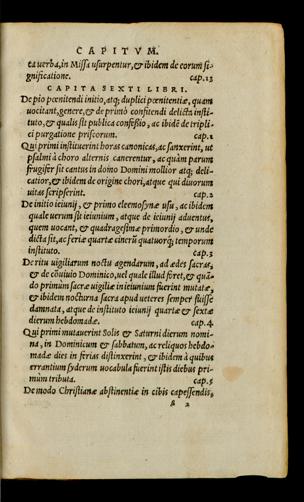 CAPITVM.
ta uerba, in Missa usurpentur, & ibidem de eorum si-
gnificatione. cap.13
CAPITA SEXTI LIBRI.
De pio pœnitendi initio, atq; duplici pœnitentiæ, quam
uocitant, genere, & de primò confitendi delicta insti-
tuto, & qualis sit publica confessio, ac ibidē de tripli-
ci purgatione priscorum. cap.1
Qui primi instituerint horas canonicas, ac sanxerint, ut
psalmi à choro alternis canerentur, ac quàm parum
frugifer sit cantus in domo Domini mollior atq; deli-
catior, & ibidem de origine chori, atque qui diuorum
uitas scripserint. cap.2
De initio ieiunij, & primo eleemosynæ usu, ac ibidem
quale uerum sit ieiunium, atque de ieiunij aduentus,
quem uocant, & quadragesimæ primordio, & unde
dicta sit, ac feriæ quartæ cinerū quatuorq; temporum
instituto. cap.3
De ritu uigiliarum noctu agendarum, ad ædes sacras,
& de cōuiuio Dominico, uel quale illud foret, & quā-
do primùm sacræ uigiliæ in ieiunium fuerint mutatæ,
& ibidem nocturna sacra apud ueteres semper fuisse
damnata, atque de instituto ieiunij quartæ & sextæ
dierum hebdomadæ. cap.4
Qui primi mutauerint Solis & Saturni dierum nomi-
na, in Dominicum & sabbatum, ac reliquos hebdo-
madæ dies in ferias distinxerint, & ibidem à quibus
errantium syderum uocabula fuerint istis diebus pri-
mùm tributa. cap.5
De modo Christianæ abstinentiæ in cibis capessendis,
2